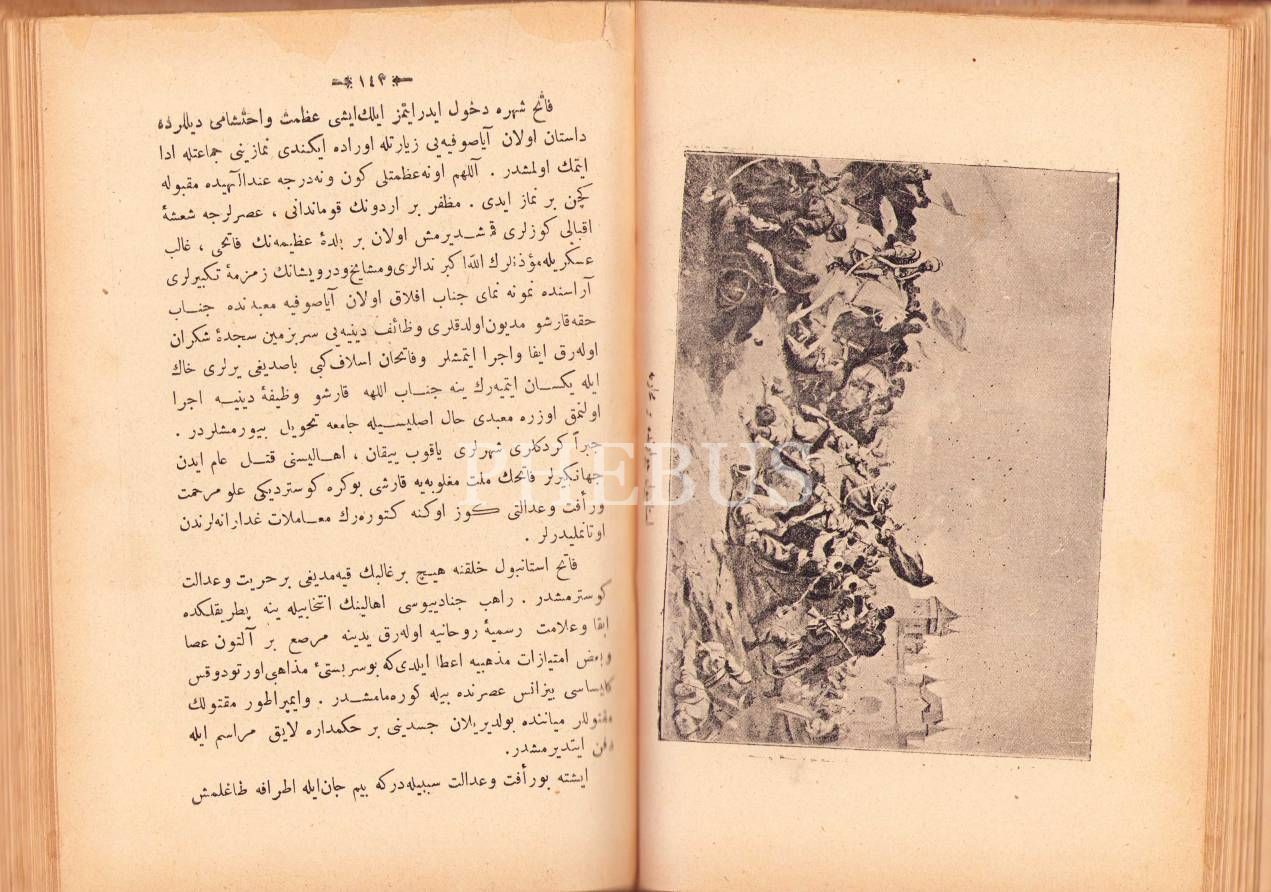 ١٤٣
فاتح شهره دخول ایدر ایتمز ایلك ایشی عظمت و احتشامی دیللرده
داستان اولان آیاصوفیه‌یی زیارتله اوراده ایکندی نمازینی جماعتله ادا
ایتمك اولمشدر . آللهم او نه عظمتلی كون و نه درجه عندالٓهیده مقبوله
كچن بر نماز ایدی . مظفر بر اردونك قوماندانی ، عصرلرجه شعشعۀ
اقبالی كوزلری قمشدیرمش اولان بر بلدۀ عظیمه‌نك فاتحی ، غالب
عسكریله، مؤذنلرك الله‌اكبر ندالری و مشایخ و درویشانك زمزمۀ تكبیرلری
آراسنده نمونه نمای جناب افلاق اولان آیاصوفیه معبدنده جناب
حقه قارشو مدیون اولدقلری وظائف دینیه‌یی سربزمین سجدۀ شكران
اوله‌رق ایفا و اجرا ایتمشلر و فاتحان اسلاف كبی باصدیغی یرلری خاك
ایله یكسان ایتمیه‌رك ینه جناب اللهه قارشو وظیفۀ دینیه اجرا
اولنمق اوزره معبدی حال اصلیسیله جامعه تحویل بیورمشلردر .
جبراً كردكلری شهرلری یاقوب ییقان ، اهالیسنی قتل عام ایدن
جهانكیرلر فاتحك ملت مغلوبه‌یه قارشی بوكره كوستردیكی علو مرحمت
و رأفت و عدالتی كوز اوكنه كتوره‌رك معاملات غدارانه‌لرندن
اوتانملیدرلر .
فاتح استانبول خلقنه هیچ بر غالبك قیه‌مدیغی بر حریت و عدالت
كوسترمشدر . راهب جنادییوسی اهالینك انتخابیله ینه پطریقلكده
ابقا و علامت رسمیۀ روحانیه اوله‌رق یدینه مرصع بر آلتون عصا
و بعض امتیازات مذهبیه اعطا ایلدی كه بو سربستئ مذاهبی اورتودوقس
كلیساسی بیزانس عصرنده بیله كوره‌مامشدر . و ایمپراطور مقتولك
مقتوللر میاننده بولدیریلان جسدینی بر حكمداره لایق مراسم ایله
دفن ایتدیرمشدر.
ایشته بو رأفت و عدالت سببیله‌دركه بیم جان ایله اطرافه طاغلمش
PHEBUS